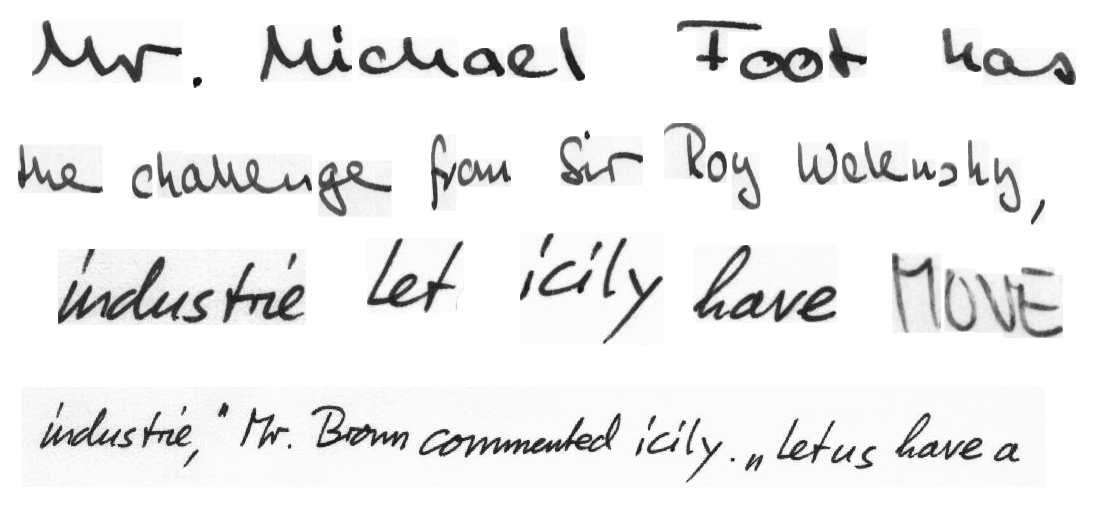 Mr. Michael Foot has
the challenge from Sir Roy Welensky,
industrie Let icily have MOVE
industrie," Mr. Brown commented icily. „Let us have a